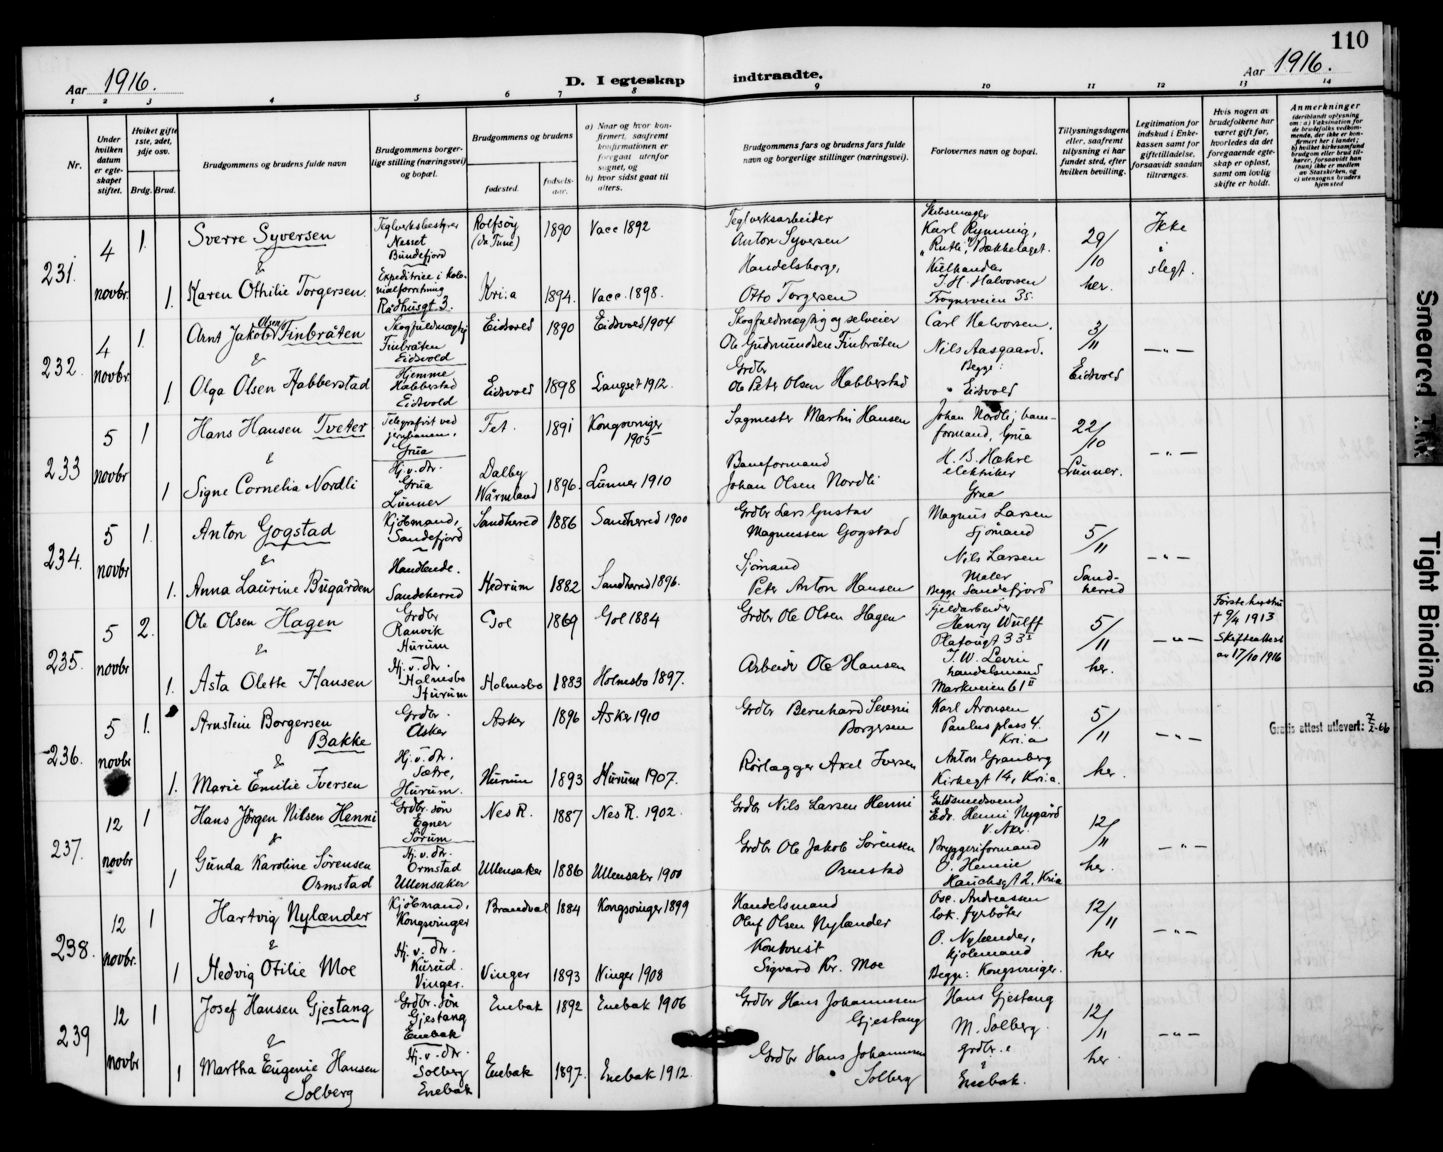 110
Aar 1916.
D. I egteskap indtraadte.
Aar 1916.
1 2 3 4 5 6 7 8 9 10 11 12 13 14
Nr.
Under hvilken datum er egteskapet stiftet.
Hvilket gifte 1ste, 2det, 3dje osv.
Brdg. Brud.
Brudgommens og brudens fulde navn
Brudgommens borgerlige stilling (næringsvei) og bopæl.
Brudgommens og brudens
fødested.
fødselsaar.
a) Naar og hvor konfirmert, saafremt konfirmationen er foregaat utenfor sognet, og
b) hvor sidst gaat til alters.
Brudgommens fars og brudens fars fulde navn og borgerlige stillinger (næringsvei).
Forlovernes navn og bopæl.
Tillysningsdagene eller, saafremt tillysning ei har fundet sted, efter hvilken bevilling.
Legitimation for indskud i Enkekassen samt for giftetilladelse, forsaavidt saadan tiltrænges.
Hvis nogen av brudefolkene har været gift før, hvorledes da det foregaaende egteskap er opløst, samt om lovlig skifte er holdt.
Anmerkninger
231.
4 novbr.
1.
Sverre Syversen
&
1.
Karen Othilie Torgersen.
Teglverksbestyrer
Nesset
Bundefjord
Expeditrice i kolonialforretning
Rådhusgt 3.
Rolfsøy
(da Tune)
1890
Vacc 1892
Kri:a
1894.
Vacc. 1898.
Teglverksarbeider
Anton Syversen
Handelsborger,
Otto Torgersen
Karl Rynning,
"Rutli", Bækkelaget.
Kulhandler
J. H. Halvorsen
Frognerveien 35.
29/10
her.
Ikke
i
slegt.
232.
4 novbr.
1.
Arnt Jakob Olsen Finbråten
&
1
Olga Olsen Habberstad
Skogfuldmægtig
Finbråten
Eidsvold
Hjemme
Habberstad
Eidsvold
Eidsvold
1890
Eidsvold 1904
Eidsvold
1898
Langset 1912.
Skogfuldmægtig og selveier
Ole Gudmundsen Finbråten
Grdbr
Ole Peter Olsen Habberstad
Carl Halvorsen.
Nils Aasgaard.
Begge:
Eidsvold
3/11
Eidsvold
— " —
233
5 novbr
1
Hans Hansen Tveter
&
1
Signe Cornelia Nordli
Telegrafist ved
jernbanen,
Grua
Hj. v. dtr.
Grua
Lunner
Fet.
1891
Kongsvinger
1905
Dalby
Wärmland
1896.
Lunner 1910
Sagmester Martin Hansen
Baneformand
Johan Olsen Nordli
Johan Nordli, baneformand, Grua
H. B. Hæhre
elektriker
Grua
22/10
Lunner.
— " —
234.
5 novbr
1.
Anton Gogstad
&
1.
Anna Laurine Bugården
Kjøbmand,
Sandefjord
Handlende.
Sandeherred
Sandherred
1886
Sandherred 1900
Hedrum
1882
Sandherred 1896.
Grdbr Lars Gustav
Magnussen Gogstad
Sjømand
Peter Anton Hansen
Magnus Larsen
Sjømand
Nils Larsen
Maler
Begge Sandefjord
5/11
Sandherred
— " —
235.
5 novbr
2.
Ole Olsen Hagen
&
1.
Asta Olette Hansen
Grdbr
Ranvik
Hurum
Hj. v. dtr.
Holmsbo
Hurum
Gol
1869
Gol 1884
Holmsbo
1883
Holmsbo 1897.
Grdbr Ole Olsen Hagen
Arbeider Ole Hansen
Henry Wulff
J. W. Levin
handelsmand
Markveien 61 II
5/11
her.
— " —
Første hustru
† 9/4 1913
Skifteattest
av 17/10 1916
236.
5 novbr
1.
Arnstein Borgersen
Bakke
&
1.
Marie Emilie Iversen
Grdbr.
Asker
Hj. v. dtr.
Sætre,
Hurum.
Asker
1896
Asker 1910
Hurum
1893
Hurum 1907.
Grdbr Bernhard Severin
Borgersen
Rørlægger Axel Iversen
Karl Aronsen
Paulus plass 4.
Kri.a
Anton Granberg
Kirkegt 14, Kria.
5/11
her.
— " —
Gratis attest utlevert: 7/2-66
237.
12 novbr
1
Hans Jørgen Nilsen Henni
&
1
Gunda Karoline Sørensen
Ormstad
Grdbr. søn
Egner
Sørum
Hj. v. dtr.
Ormstad
Ullensaker
Nes R.
1887
Nes R. 1902.
Ullensaker
1886
Ullensaker 1900
Grdbr Nils Larsen Henni
Grdbr Ole Jakob Sørensen
Ormstad
Guldsmedsvend
Edv. Henni Nygård
V. Aker.
Bryggeriformand
O. Hennie
Hauchsgt 2, Kria
12/11
her.
— " —
238.
12 novbr.
1
Hartvig Nylænder
&
1
Hedvig Otilie Moe
Kjøbmand,
Kongsvinger
Hj. v. dtr.
Kurud
Vinger.
Brandval
1884
Kongsvinger 1899
Vinger
1893
Vinger 1908
Handelsmand
Oluf Olsen Nylænder
Kontorist
Sigvard Kr. Moe
Ove. Andreassen
lok. fyrbøter
O. Nylænder,
kjølemand
Begge: Kongsvinger.
12/11
her
— " —
239
12 novbr
1
Josef Hansen Gjestang
&
1
Martha Eugenie Hansen
Solberg
Grdbr. søn
Gjestang
Enebak
Hj. v. dtr.
Solberg
Enebak
Enebak
1892
Enebak 1906
Enebak
1897.
Enebak 1912.
Grdbr Hans Johannesen
Gjestang
Grdbr Hans Johannesen
Solberg
Hans Gjestang
M. Solberg
grdbr. e
i
Enebak.
12/11
her.
— " —
Smeared Ink
Tight Binding